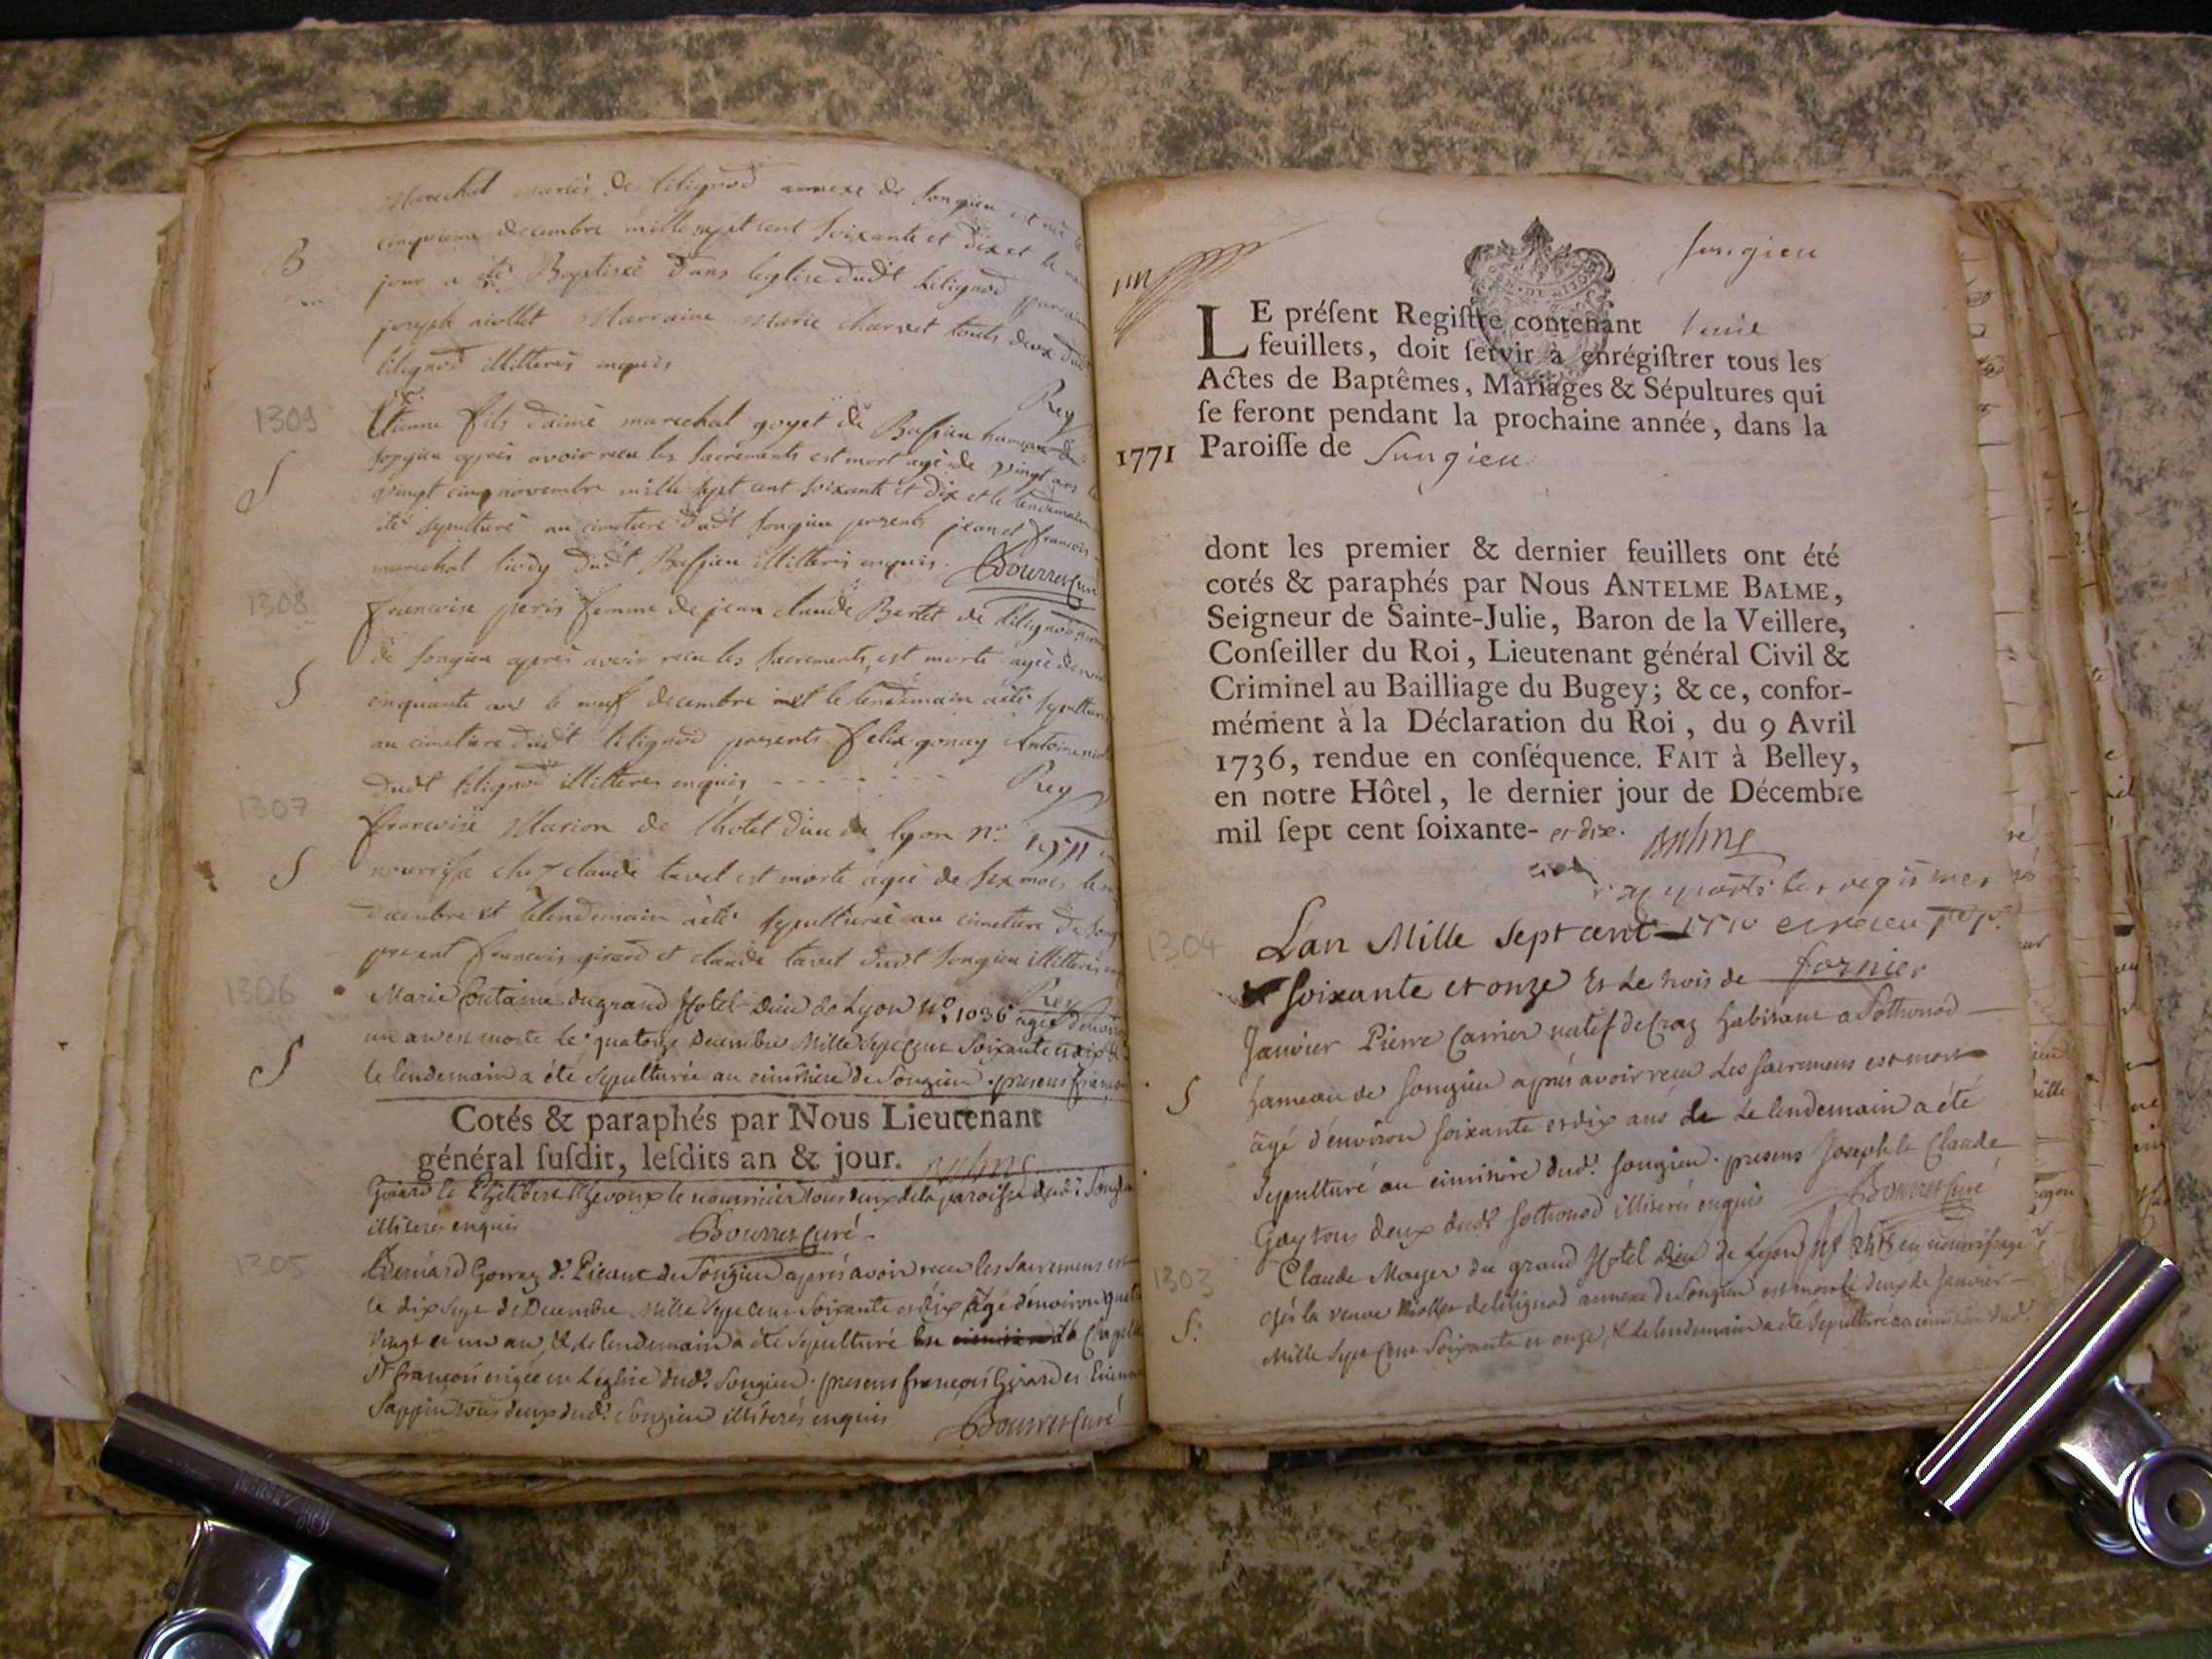 Marechal mariés de lilignod annexe de Songieu et né le
cinquieme decembre mille sept cent soixante et dix et le
jour a été Baptisé dans leglise dudt lilignod parrain
B
joseph niollet Marraine Marie charvet touts deux dudt
lilignod illitterés enquis
Rey
1309
Etienne fils daimé marechal goyet de Bassieu hameau de
songieu après avoir recu les sacrements est mort agé de vingt ans le
S
vingt cinq novembre mille sept cent soixante et dix et le lendemain
été sepulturé au cimetiere dudt songieu presents jean et francois
marechal dudt Bassieu illitterés enquis. Bourret Curé
1308
francoise peris femme de jean claude Bertet de lilignod
de songieu après avoir recu les sacrements, est morte agée denviron
S
cinquante ans le neuf decembre et le lendemain a été sepulturée
au cimetiere dudt lilignod presents felix gonay Antoine
dudt lilignod illitteres enquis - - - - - - - Rey
1307
francoise Marion de lhotel dieu de lyon n°
S
nourrisse chez claude tavel est morte agée de six mois le
decembre et le lendemain a été sepulturée au cimetiere de
present francois girard et claude tavel dudt songieu illitterés
Rey
1306
Marie Coutaine du grand Hotel-Dieu de Lyon N°. 1036 agée denviron
un an est morte le quatorze Decembre Mille Sept Cent Soixante et dix &
S
le lendemain a été Sepulturée au cimitiere de Songieu. presens françois
Cotés & paraphés par Nous Lieutenant
général ſuſdit, leſdits an & jour. Balme
Girard et Philibert le nourricier tous deux de la paroisse dudt. Songieu
illiterés enquis Bourret Curé
1305
Bernard Gonay dt. de Songieu après avoir receu les Sacremens est
le dix Sept de Decembre Mille Sept Cent Soixante et dix agé d'environ quatre
vingt et un an, & le lendemain a été Sepulturé la Chapelle
St françois erigée en L'église dudt. Songieu. presens françois Girard et
Sappin tous deux dudt. Songieu illiterés enquis
Bourret Curé
Songieu
LE préſent Regiſtre contenant
feuillets, doit ſervir à enrégiſtrer tous les
Actes de Baptêmes, Mariages & Sépultures qui
ſe feront pendant la prochaine année, dans la
1771 Paroiſſe de Songieu
dont les premier & dernier feuillets ont été
cotés & paraphés par Nous ANTELME BALME,
Seigneur de Sainte-Julie, Baron de la Veillere,
Conſeiller du Roi, Lieutenant général Civil &
Criminel au Bailliage du Bugey; & ce, confor-
mément à la Déclaration du Roi, du 9 Avril
1736, rendue en conſéquence. FAIT à Belley,
en notre Hôtel, le dernier jour de Décembre
mil ſept cent ſoixante- et dix. Balme
les registres
1304
L'an Mille Sept cent
Soixante et onze Et Le trois de fornier
Janvier Pierre Carrier natif de Craz habitant a Sothonod
S
hameau de Songieu après avoir receu Les sacremens est mort
âgé d'environ soixante et dix ans Le lendemain a été
Sepulturé au cimitiere dudt. Songieu. presens Joseph & Claude
Gay tous deux dudt Sothonod illiterés enquis Bourret Curé
1303
Claude Mayer du grand Hotel Dieu de Lyon en nourrissage
chés la veuve de lilignod annexe de Songieu est mort le deux de Janvier
S.
Mille Sept Cent Soixante et onze, & le lendemain a été Sepulturé au cimitiere dudt.